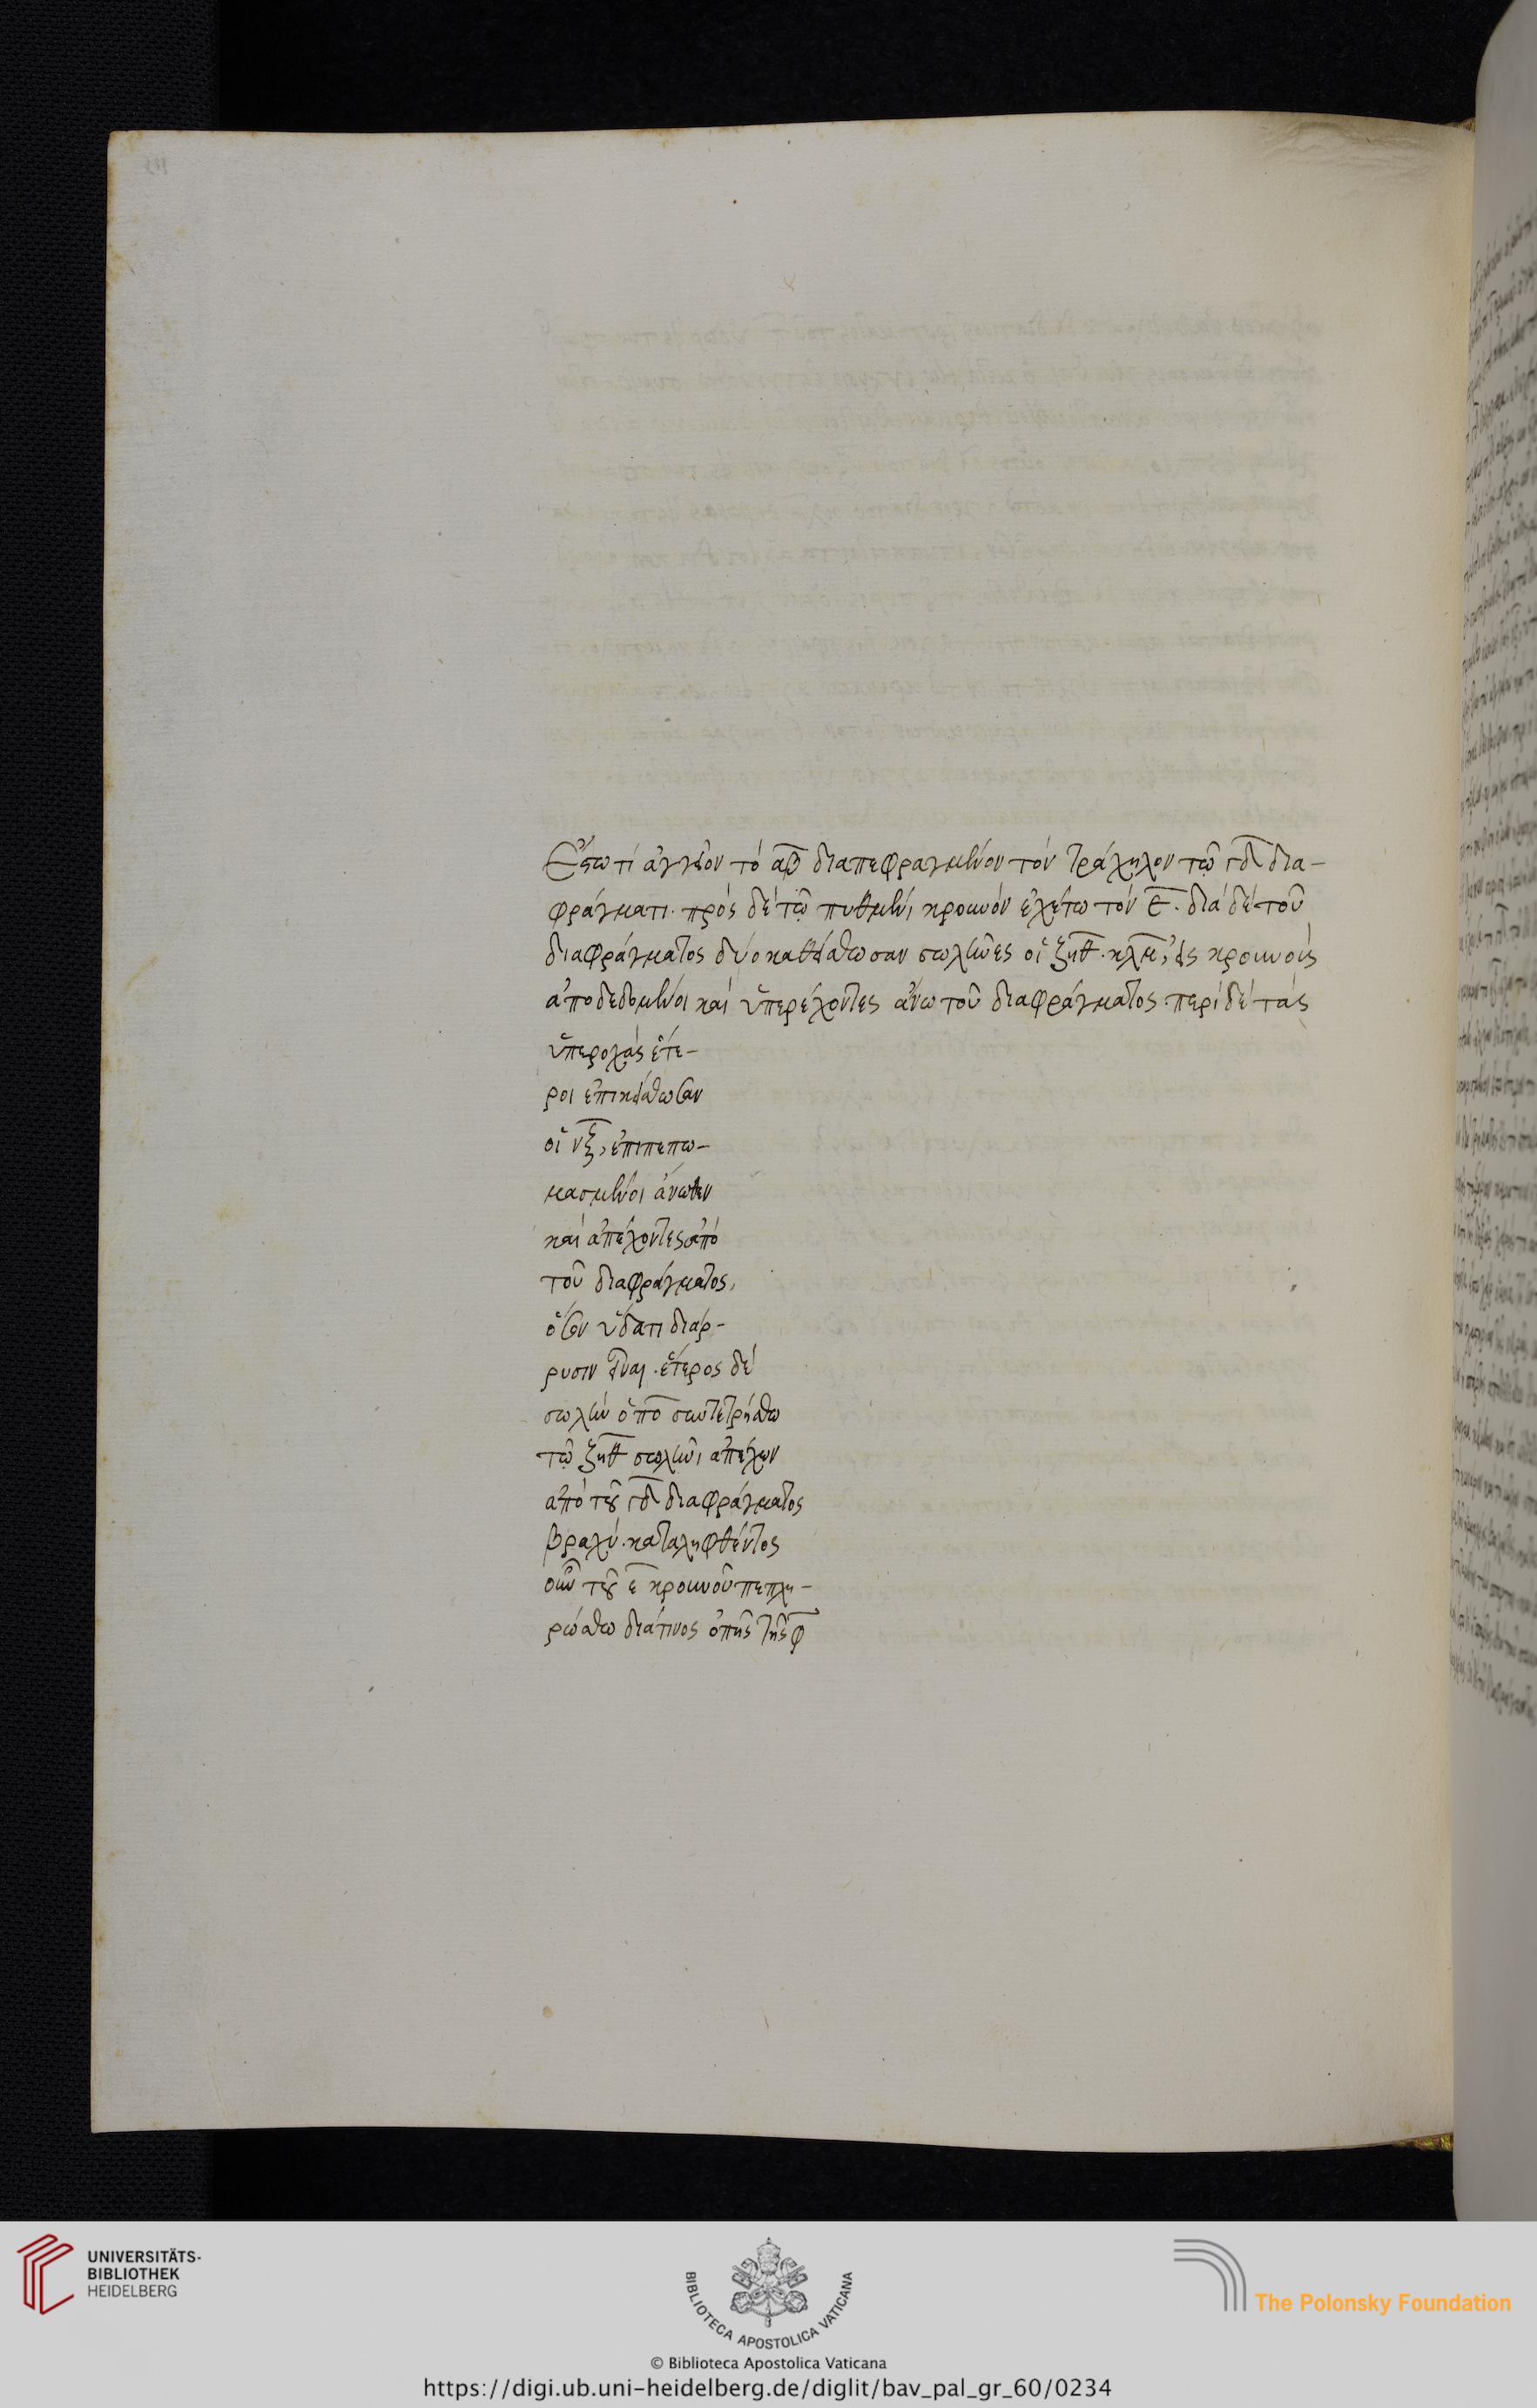 Ἔστω τὶ ἀγγεῖον τὸ α̅β̅ διαπεφραγμένον τὸν τράχηλον τῷ γ̅δ̅ δια-
φράγματι. πρὸς δὲ τῷ πυθμένι κρουνὸν ἐχέτω τὸν ε̅. διὰ δὲ τοῦ
διαφράγματος δύο καθείσθωσαν σωλῆνες οἱ ζ̅η̅θ̅. κ̅λ̅μ̅, εἰς κρουνοὺς
ἀποδεδομένοι καὶ ὑπερέχοντες ἄνω τοῦ διαφράγματος. περὶ δὲ τὰς
ὑπεροχὰς ἕτε-
ροι ἐπικείσθωσαν
οἱ ν̅ξ̅, ἐπιπεπω-
μασμένοι ἄνωθεν
καὶ ἀπέχοντες ἀπὸ
τοῦ διαφράγματος,
ὅσον ὕδατι διάρ-
ρυσιν εἶναι. ἕτερος δὲ
σωλὴν ὁ π̅ο̅ συντετρήσθω
τῷ ζ̅η̅θ̅ σωλῆνι ἀπέχων
ἀπὸ τοῦ γ̅δ̅ διαφράγματος
βραχύ. καταληφθέντος
οὖν τοῦ ε̅ κρουνοῦ πεπλη-
ρώσθω διά τινος ὀπῆς τῆς φ̅
UNIVERSITÄTS-
BIBLIOTHEK
HEIDELBERG
BIBLIOTECA APOSTOLICA VATICANA
The Polonsky Foundation
© Biblioteca Apostolica Vaticana
https://digi.ub.uni-heidelberg.de/diglit/bav_pal_gr_60/0234